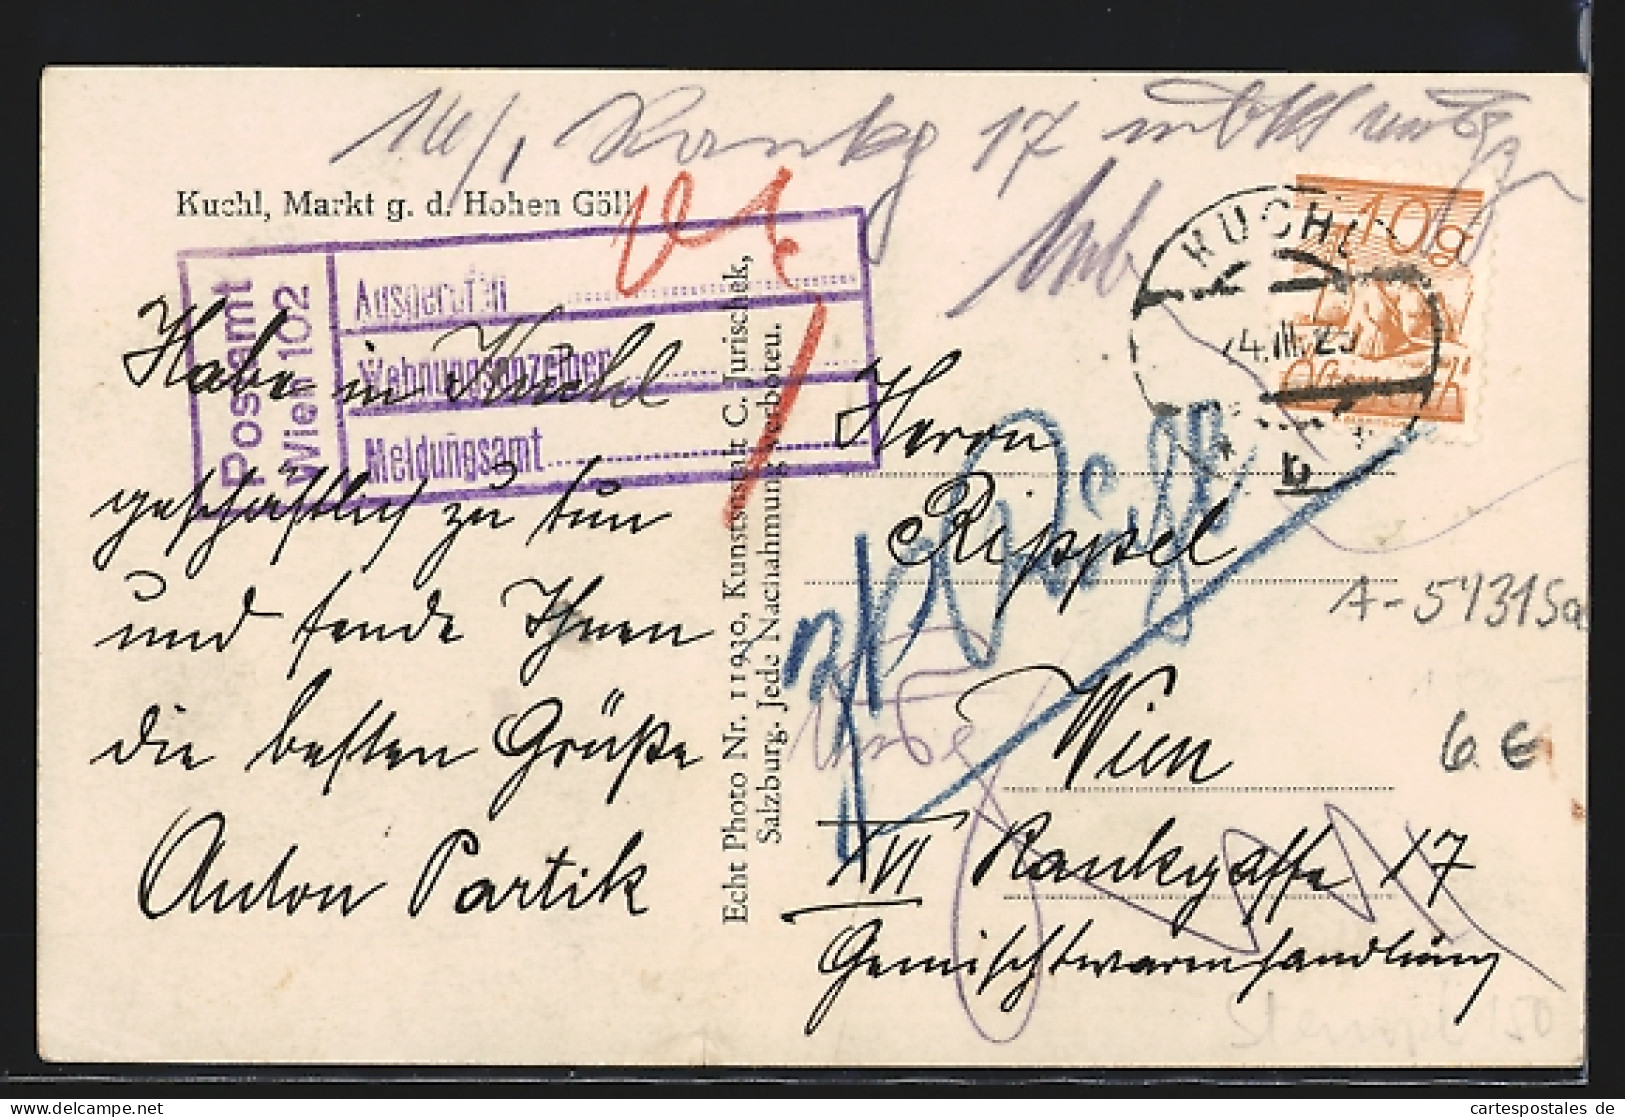 Kuchl, Markt g. d. Hohen Göll
Postamt
Wien 102
Ausgerufen
Wohnungsanzeiger
Meldungsamt
Habe in Kuchl
geschäftlich zu tun
und sende Ihnen
die besten Grüße
Anton Partik
Echt Photo Nr. 11930, Kunstanstalt C. Jurischek,
Salzburg. Jede Nachahmung verboten.
17
KUCHL
III. 2
b
10g
Österreich
Herrn
Rippel
Wien
XVI Rankgasse 17
Gemischtwarenhandlung
A-54315a
6 €
Stempel 150
cartespostales de